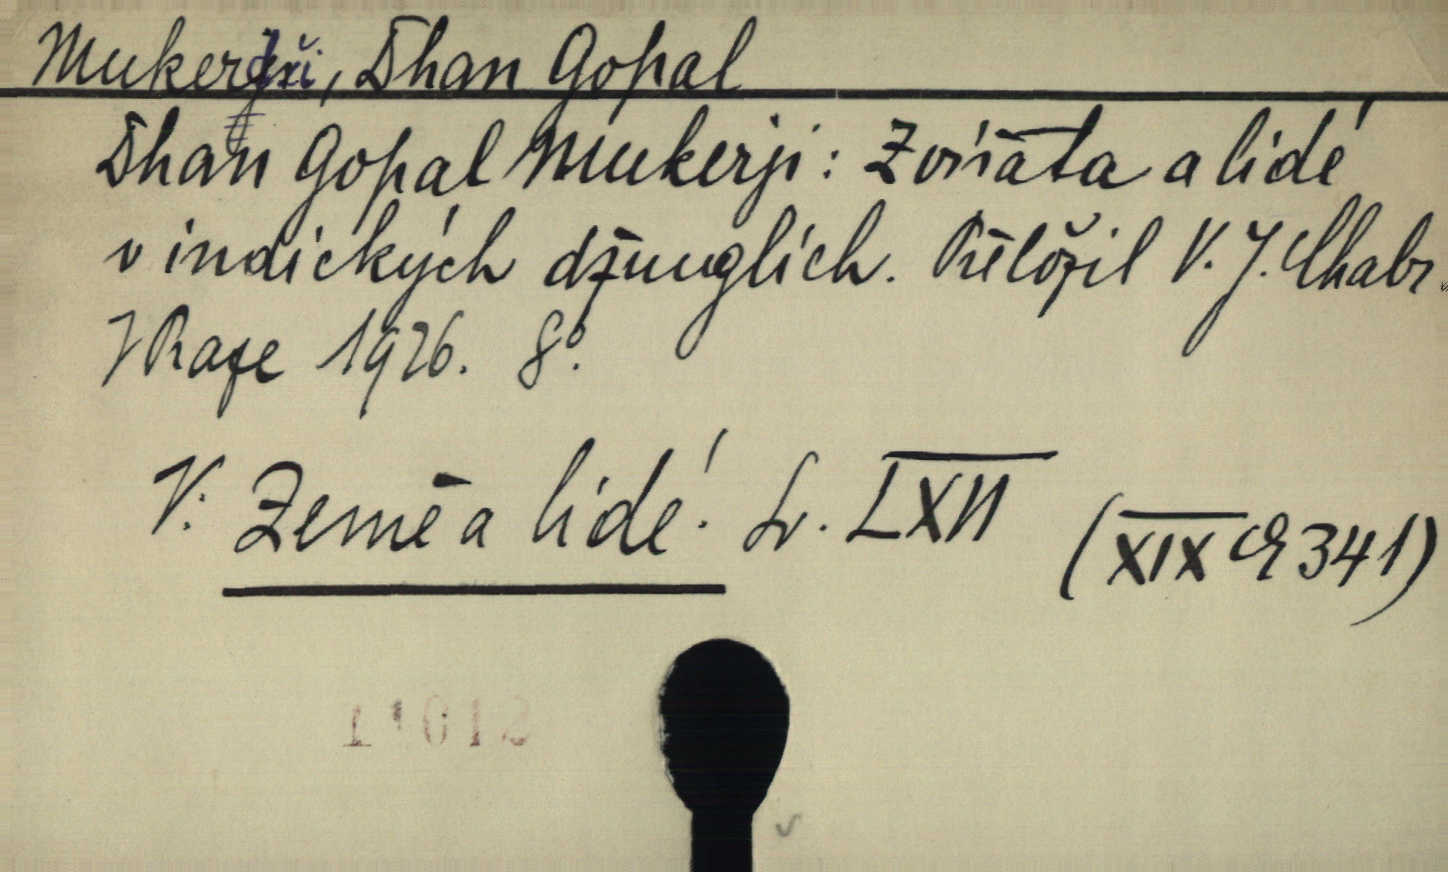 Mukerdži, Dhan Gopal
Dhan Gopal Mukerji: Zvířata a lidé
v indických džunglích. Přeložil V. J. Chabr.
V Praze 1926. 8°.
V: Země a lidé. Sv. LXII
(XIX H 341)